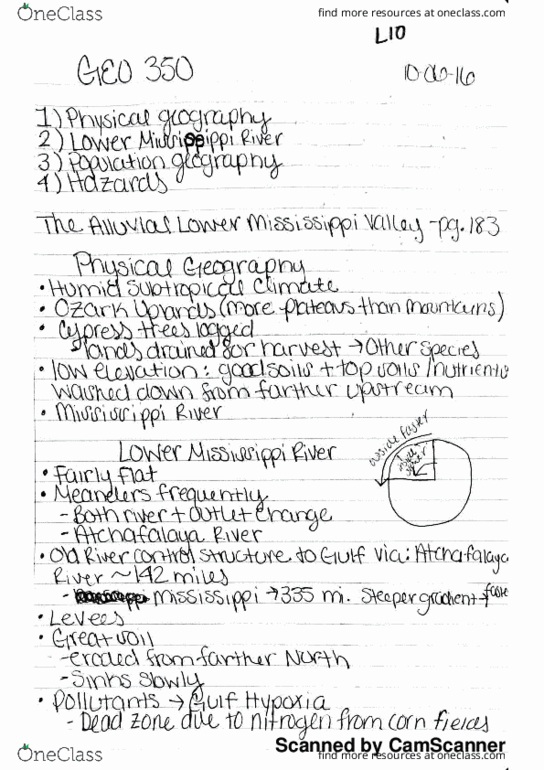 OneClass
find more resources at oneclass.com
L10
GEO 350
10-06-16
1) Physical geography
2) Lower Mississippi River
3) Population geography
4) Hazards
The Alluvial Lower Mississippi Valley -pg. 183
Physical Geography
• Humid Subtropical Climate
• Ozark Uplands (more plateaus than mountains)
• Cypress trees logged
- lands drained for harvest → Other species
• low elevation: good soils + top soils/nutrients
washed down from farther upstream
• Mississippi River
Lower Mississippi River
outside faster
• Fairly flat
• Meanders frequently
- Both river + outlet change
- Atchafalaya River
• Old River control structure to Gulf via: Atchafalaya
River ~142 miles
- Mississippi → 335 mi. Steeper gradient +
• Levees
• Great soil
- eroded from farther North
- Sinks slowly
• Pollutants → Gulf Hypoxia
- Dead zone due to nitrogen from corn fields
Scanned by CamScanner
OneClass
find more resources at oneclass.com